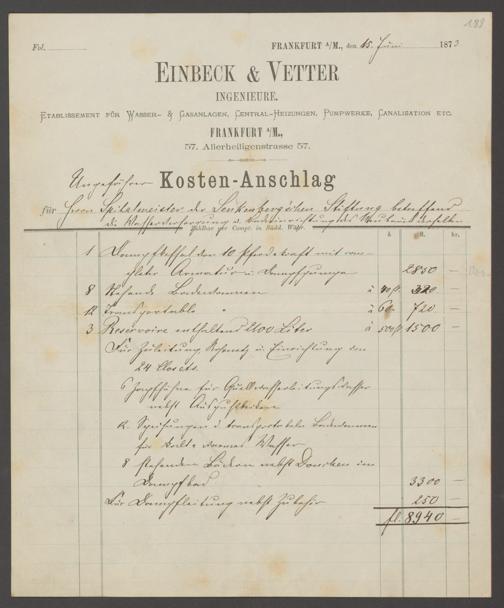 188
Fol. FRANKFURT a/M., den 15. Juni 1873
EINBECK & VETTER
INGENIEURE.
ETABLISSEMENT FÜR WASSER- & GASANLAGEN, CENTRAL-HEIZUNGEN, PUMPWERKE, CANALISATION ETC.
FRANKFURT a/M.,
57. Allerheiligenstrasse 57.
Ungefährer Kosten-Anschlag
für Herrn Spitalmeister der Senkenbergischen Stiftung betreffend
die Wasserversorgung u. Badeeinrichtung des
Zahlbar per Compt. in Südd. Währ.
à fl. kr.
1 Dampfkessel von 10 Pferdekraft mit
Armatur u. Dampfpumpe 2850 —
8 stehende Badewannen à 40 fl 320 —
12 Transportable " à 60 " 720 —
3 Reservoire enthaltend 2400 Liter à 500 fl 1500 —
Für Zuleitung u. Einrichtung von
24 Closets.
6 Zapfhähne für
nebst
12 Speisungen d. transportabelen Badewannen
für kaltes warmes Wasser
8 stehenden Bädern nebst Douchen im
Dampfbad 3300 —
Für Dampfleitung nebst Zubehör 250 —
fl. 8940 —